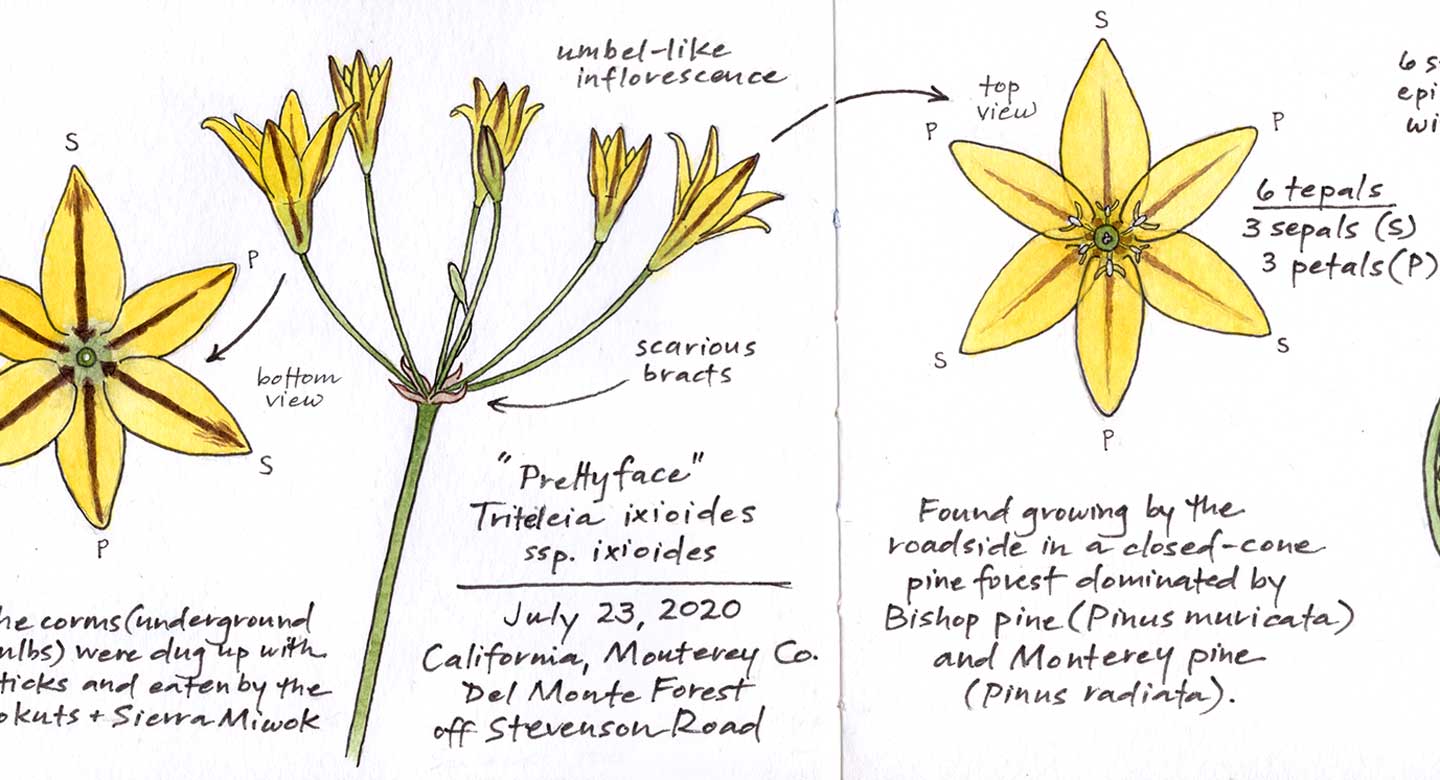 umbel-like
inflorescence
S
P
bottom
view
S
P
scarious
bracts
"Prettyface"
Triteleia ixioides
ssp. ixioides
July 23, 2020
California, Monterey Co.
Del Monte Forest
off Stevenson Road
corms (underground
were dug up with
and eaten by the
+ Sierra Miwok
top
view
S
P
P
S
S
P
6 tepals
3 sepals (S)
3 petals (P)
6
Found growing by the
roadside in a closed-cone
pine forest dominated by
Bishop pine (Pinus muricata)
and Monterey pine
(Pinus radiata).